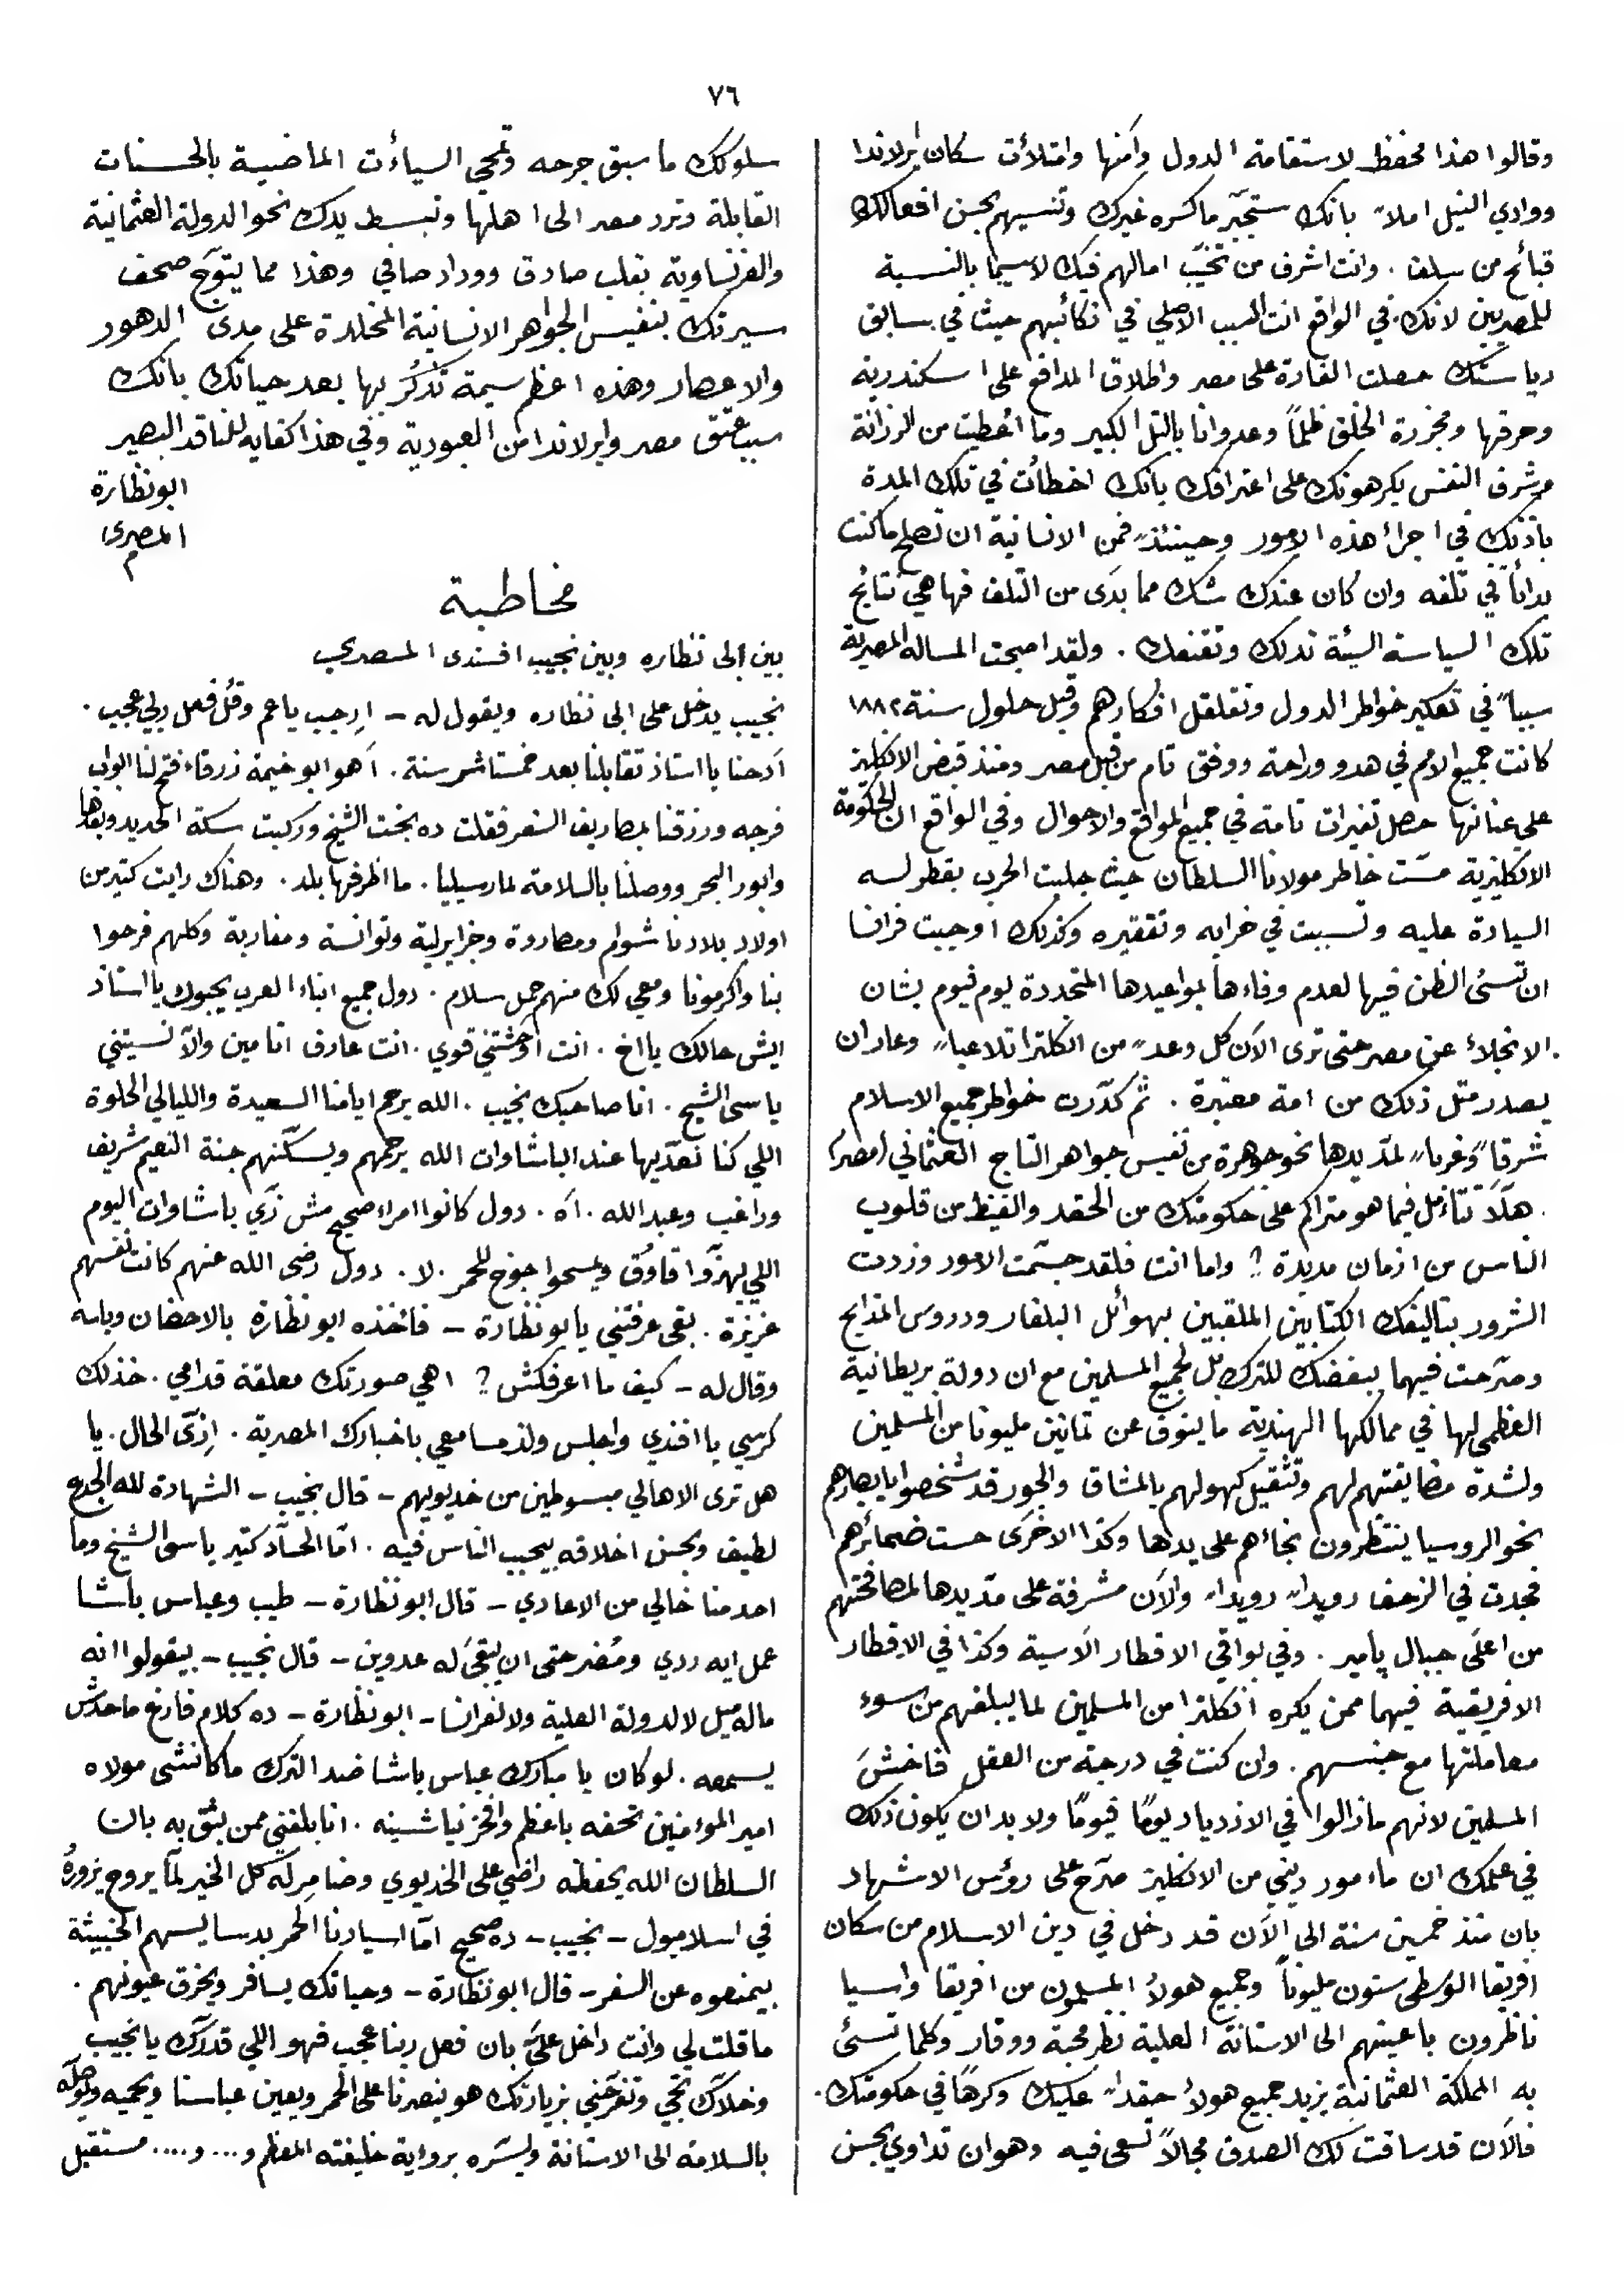 ٧٦
وقالوا هذا محفظ لاستقامة الدول وامنها وامتلأت سكان ايرلاندا
ووادي النيل املاً بانك ستجبّر ما كسره غيرك وتنسيهم بحسن افعالك
قبائح من سلف . وانت اشرف من تخيّب امالهم فيك لاسيما بالنسبة
للمصريين لانك في الواقع انت السبب الاصلي في نكائبهم حيث في سابق
رياستك حصلت الغارة على مصر واطلاق المدافع على اسكندرية
وحرقها ومجزرة الخلق ظلماً وعدوانا بالتل الكبير وما اعطيت من الرزانة
وشرف النفس يكرهونك على اعترافك بانك اخطأت في تلك المدة
باذنك في اجراء هذه الامور وحينئذٍ فمن الانسانية ان تصلح ما كنت
بدأتَ في تلفه وان كان عندك شك مما بدَى من التلف فها هي نتائج
تلك السياسة السيئة تدلك وتقنعك . ولقد اصبحت المساله المصرية
سبباً في تعكير خواطر الدول وتقلقل افكارهم وقبل حلول سنة ١٨٨٢
كانت جميع الامم في هدو وراحة ووفق تام من قبل مصر ومنذ قبض الانكليز
على عنانها حصل تغيرات تامة في جميع المواقع والاحوال وفي الواقع ان الحكومة
الانكليزية مسّت خاطر مولانا السلطان حيث جلبت الحرب بقطر له
السيادة عليه وتسببت في خرابه وتفقيره وكذلك اوجبت فرانسا
ان تسئ الظن فيها لعدم وفاءها بمواعيدها المتجددة يوم فيوم بشان
الانجلاء عن مصر حتى ترى الآن كل وعدٍ من انكلترا تلاعباً وعار ان
يصدر مثل ذلك من امة معتبرة . ثم كدّرت خواطر جميع الاسلام
شرقاً وغرباً لمدّ يدها نحو جوهرة من نفيس جواهر التاج العثماني (مصر)
. هلاّ تتأمل فيما هو متراكم على حكومتك من الحقد والغيظ من قلوب
الناس من ازمان مديدة ؟ واما انت فلقد جسّمت الامور وزدت
الشرور بتاليفك الكتابين الملقبين بهوائل البلغار ودروس المذابح
وصرّحت فيهما ببغضك للترك بل لجميع المسلمين مع ان دولة بريطانية
العظمى لها في ممالكها الهندية ما ينوف عن ثمانين مليونا من المسلمين
ولشدة مضايقتهم لهم وتثقيل كهولهم بالمشاق والجور قد شخصوا بابصارهم
نحو الروسيا ينتظرون نجاءهم على يدها وكذا الاخرَى حست ضمائرهم
فجدت في الزحف رويداً رويداً والآن مشرفة على مدّ يدها لمصافحتهم
من اعلَى جبال پامير . وفي بواقي الاقطار الآسية وكذا في الاقطار
الافريقية فيهما ممن يكره انكلترا من المسلمين لما يبلغهم من سوء
معاملتها مع جنسهم . وان كنت في درجة من العقل فاخشَ
المسلمين لانهم ما زالوا في الازدياد يومًا فيومًا ولا بد ان يكون ذلك
في علمك ان مامور ديني من الانكليز صرّح على رؤس الاشهاد
بان منذ خمسين سنة الى الآن قد دخل في دين الاسلام من سكان
افريقا الوسطى ستون مليوناً وجميع هولاء المسلمون من افريقا واسيا
ناظرون باعينهم الى الاستانة العلية نظر محبة ووقار وكلما تسئ
به المملكة العثمانية يزيد جميع هولاء حقداً عليك وكرهًا في حكومتك .
فالآن قد ساقت لك الصدف مجالاً تسعى فيه وهو ان تداوي بحسن
سلوكك ما سبق جرحه وتمحي السيأت الماضية بالحسنات
القابلة وترد مصر الى اهلها وتبسط يدك نحو الدولة العثمانية
والفرنساوية بقلب صادق ووداد صافي وهذا مما يتوّج صحف
سيرتك بنفيس الجواهر الانسانية المخلدة على مدى الدهور
والاعصار وهذه اعظم سيمة تذكرُ بها بعد حياتك بانك
سبب عتق مصر وايرلاندا من العبودية وفي هذا كفايه للناقد البصير
ابو نظارة
المصرى
م
مخاطبة
بين ابى نظاره وبين نجيب افندى المصري
نجيب يدخل على ابى نظاره ويقول له - ارجب يا عم وقُل فعل ربي عجيب .
اَدحنا يا استاذ تقابلنا بعد خمستاشر سنة . اَهو ابو خيمة زرقاء فتح لنا ابواب
فرجه ورزقنا بمصاريف السفر فقلت ده بخت الشيخ وركبت سكة الحديد وبعدها
وابور البحر ووصلنا بالسلامة لمارسيليا . ما اظرفها بلد . وهناك رايت كتير من
اولاد بلادنا شوام ومصاروة وجزايرلية وتوانسة ومغاربة وكلهم فرحوا
بنا واكرمونا ومعي لك منهم حمل سلام . دول جميع ابناء العرب يحبوك يا استاذ
ايش حالك يا اخ . انت اوحشتني قوي . انت عارف انا مين والاّ نسيتني
يا سى الشيخ . انا صاحبك نجيب . الله يرحم ايامنا السعيدة والليالي الحلوة
اللي كنا نعدّيها عند الباشاوات الله يرحمهم ويسكّنهم جنة النعيم شريف
وراغب وعبد الله . آه . دول كانوا امرا صحيح مش زَي باشاوات اليوم
اللي يهزّوا قاوُق ويمسحوا جوخ للحمر . لا . دول رضى الله عنهم كانت نفسهم
عزيزة . بقى عرفتني يا بو نظارة - فاخذه ابو نظارة بالاحضان وباسه
وقال له - كيف ما اعرفكش ؟ اهي صورتك معلقة قدامي . خذ لك
كرسي يا افندي واجلس ولذ مسامعي باخبارك المصرية . اِزَّى الحال . يا
هل ترى الاهالي مبسوطين من خديويهم - قال نجيب - الشهادة لله الجدع
لطيف وبحسن اخلاقه بيحبب الناس فيه . امّا الحسّاد كتير يا سى الشيخ وما
احد منا خالي من الاعادي - قال ابو نظارة - طيب وعباس باشا
عمل ايه ردي ومُضر حتى ان يبقَى له عدوين - قال نجيب - بيقولوا انه
ماله ميل لا لدولة العلية ولا لفرانسا - ابو نظارة - ده كلام فارغ ما حدّش
يسمعه . لو كان يا مبارك عباس باشا ضد الترك ما كانشى مولاه
امير المؤمنين تحفه باعظم وافخر نياشينه . انا بلغني ممن يثق به بان
السلطان الله يحفظه راضي على الخديوي وضامر له كل الخير لمّا يروح يزورهُ
في اسلامبول - نجيب - ده صحيح امّا اسيادنا الحمر بدسايسهم الخبيثة
بيمنعوه عن السفر - قال ابو نظارة - وحياتك يسافر ويخزق عيونهم .
ما قلت لي وانت داخل علَيّ بان فعل ربنا عجب فهو اللي قدرّك يا نجيب
وخلاّك تجي وتفرّحني بزيارتك هو ينصرنا على الحمر ويعين عباسنا ويحميه ويوصله
بالسلامة الى الاستانة ويسّره برواية خليفته المعظم و... و.... مستقبل